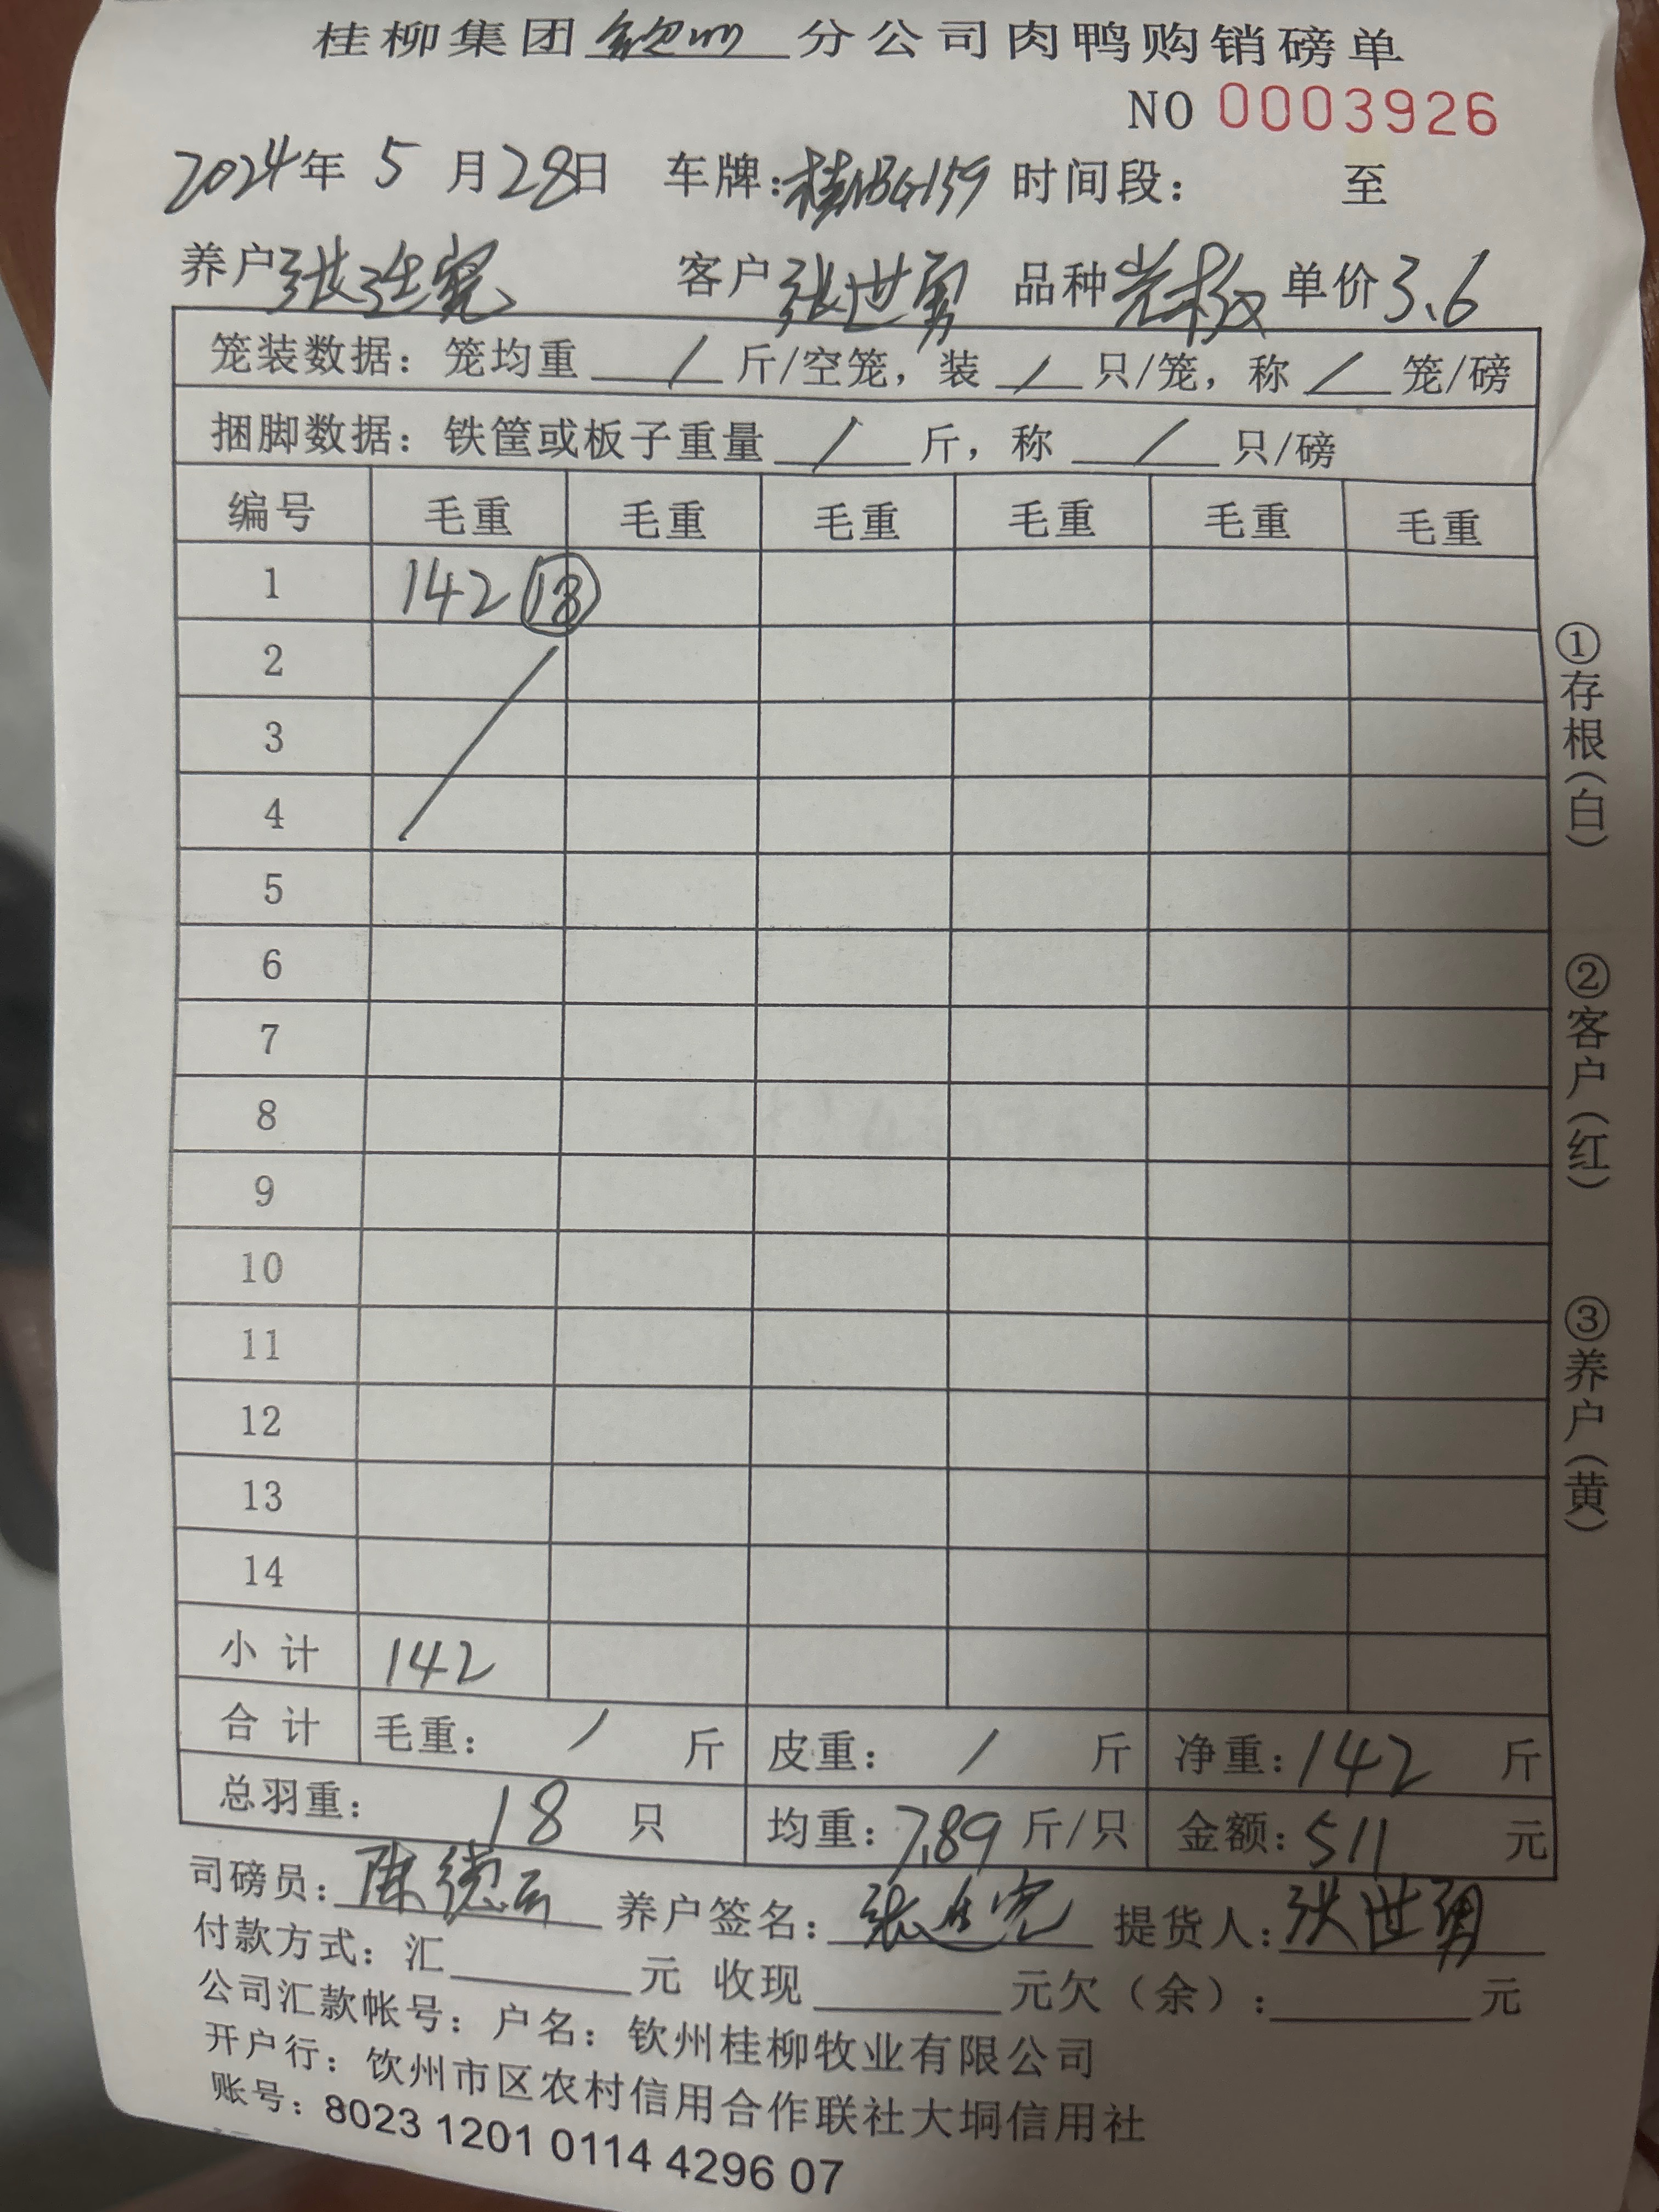 桂柳集团钦州分公司肉鸭购销磅单
NO 0003926
2024年 5 月28日 车牌:桂NBG159 时间段: 至
养户张 客户张世勇 品种 单价3.6
笼装数据: 笼均重 / 斤/空笼, 装 / 只/笼, 称 / 笼/磅
捆脚数据: 铁筐或板子重量 / 斤, 称 / 只/磅
编号 毛重 毛重 毛重 毛重 毛重 毛重
1 142 18
2
3
4
5
6
7
8
9
10
11
12
13
14
小 计 142
合 计 毛重: / 斤 皮重: / 斤 净重:142 斤
总羽重: 18 只 均重:7.89 斤/只 金额:511 元
司磅员:陈德云 养户签名:张 提货人:张世勇
付款方式: 汇 元 收现 元欠(余): 元
公司汇款帐号: 户名: 钦州桂柳牧业有限公司
开户行: 饮州市区农村信用合作联社大垌信用社
账号: 8023 1201 0114 4296 07
①存根(白) ②客户(红) ③养户(黄)